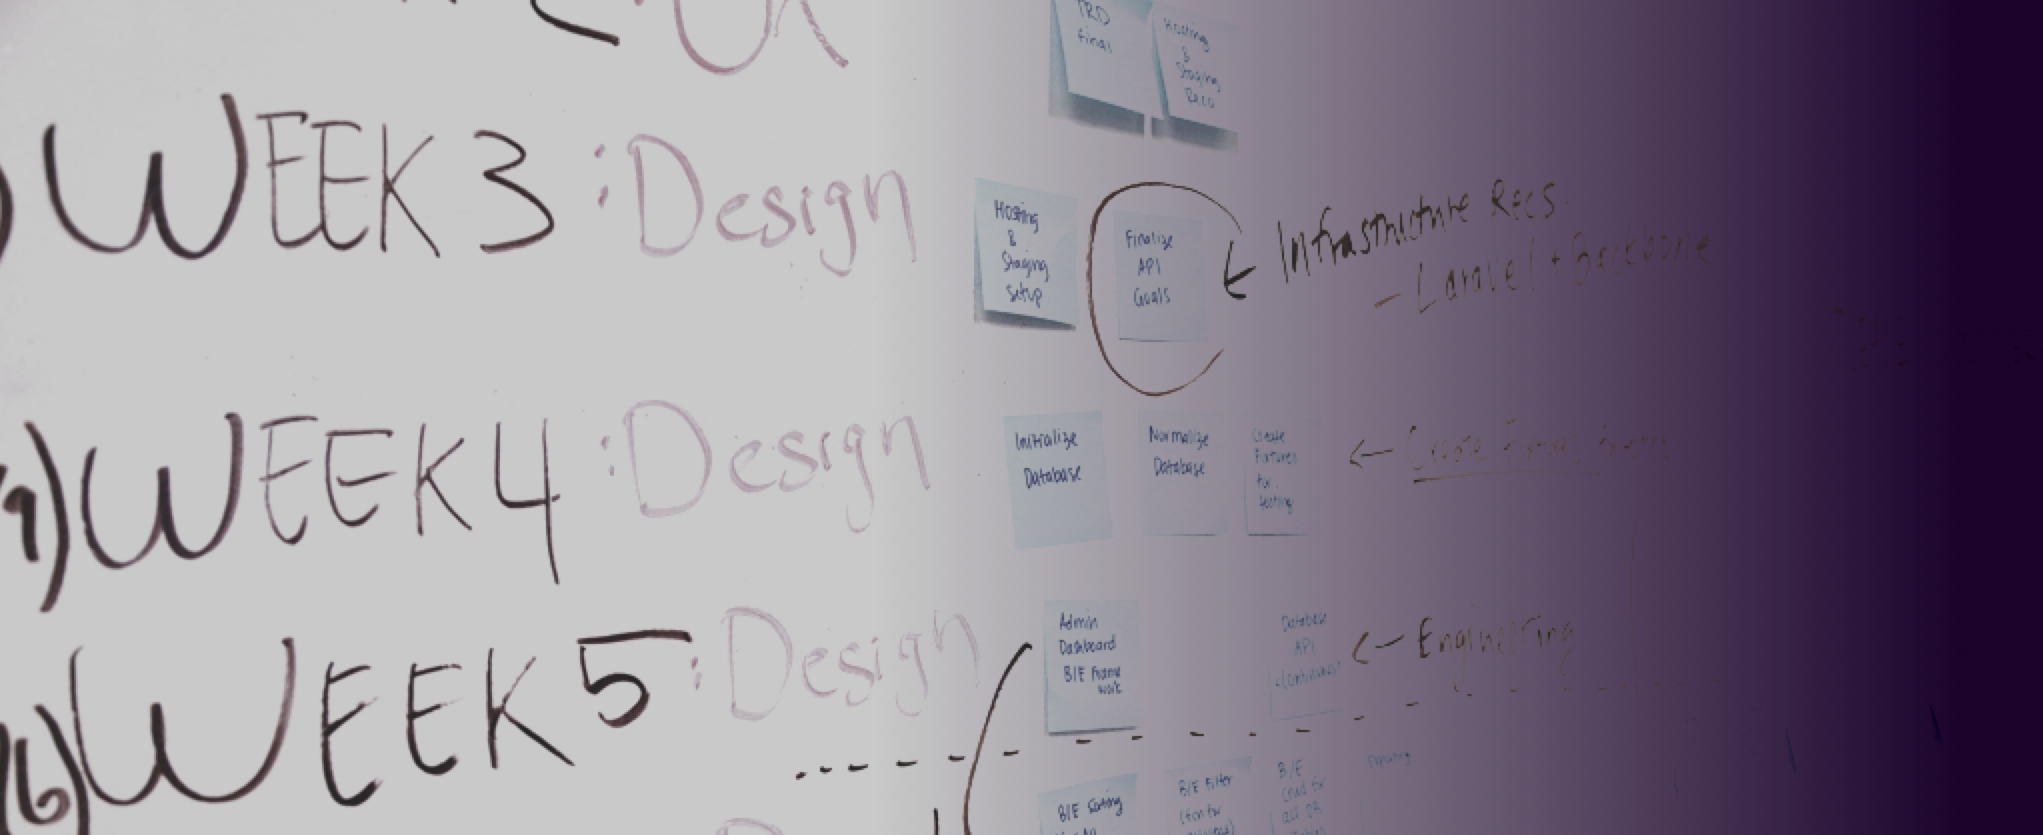 TRD
final
Hosting
&
Staging
Reco
WEEK 3 : Design
Hosting
&
Staging
Setup
Finalize
API
Goals
← Infrastructure Recs.
- Laravel + Backbone
9) WEEK 4 : Design
Initialize
Database
Normalize
Database
Create
Fixtures
for
testing
← Create
16) WEEK 5 : Design
Admin
Dashboard
B/E Frame
work
Database
API
(continued)
← Engineering
B/E Sorting
B/E Filter
B/E